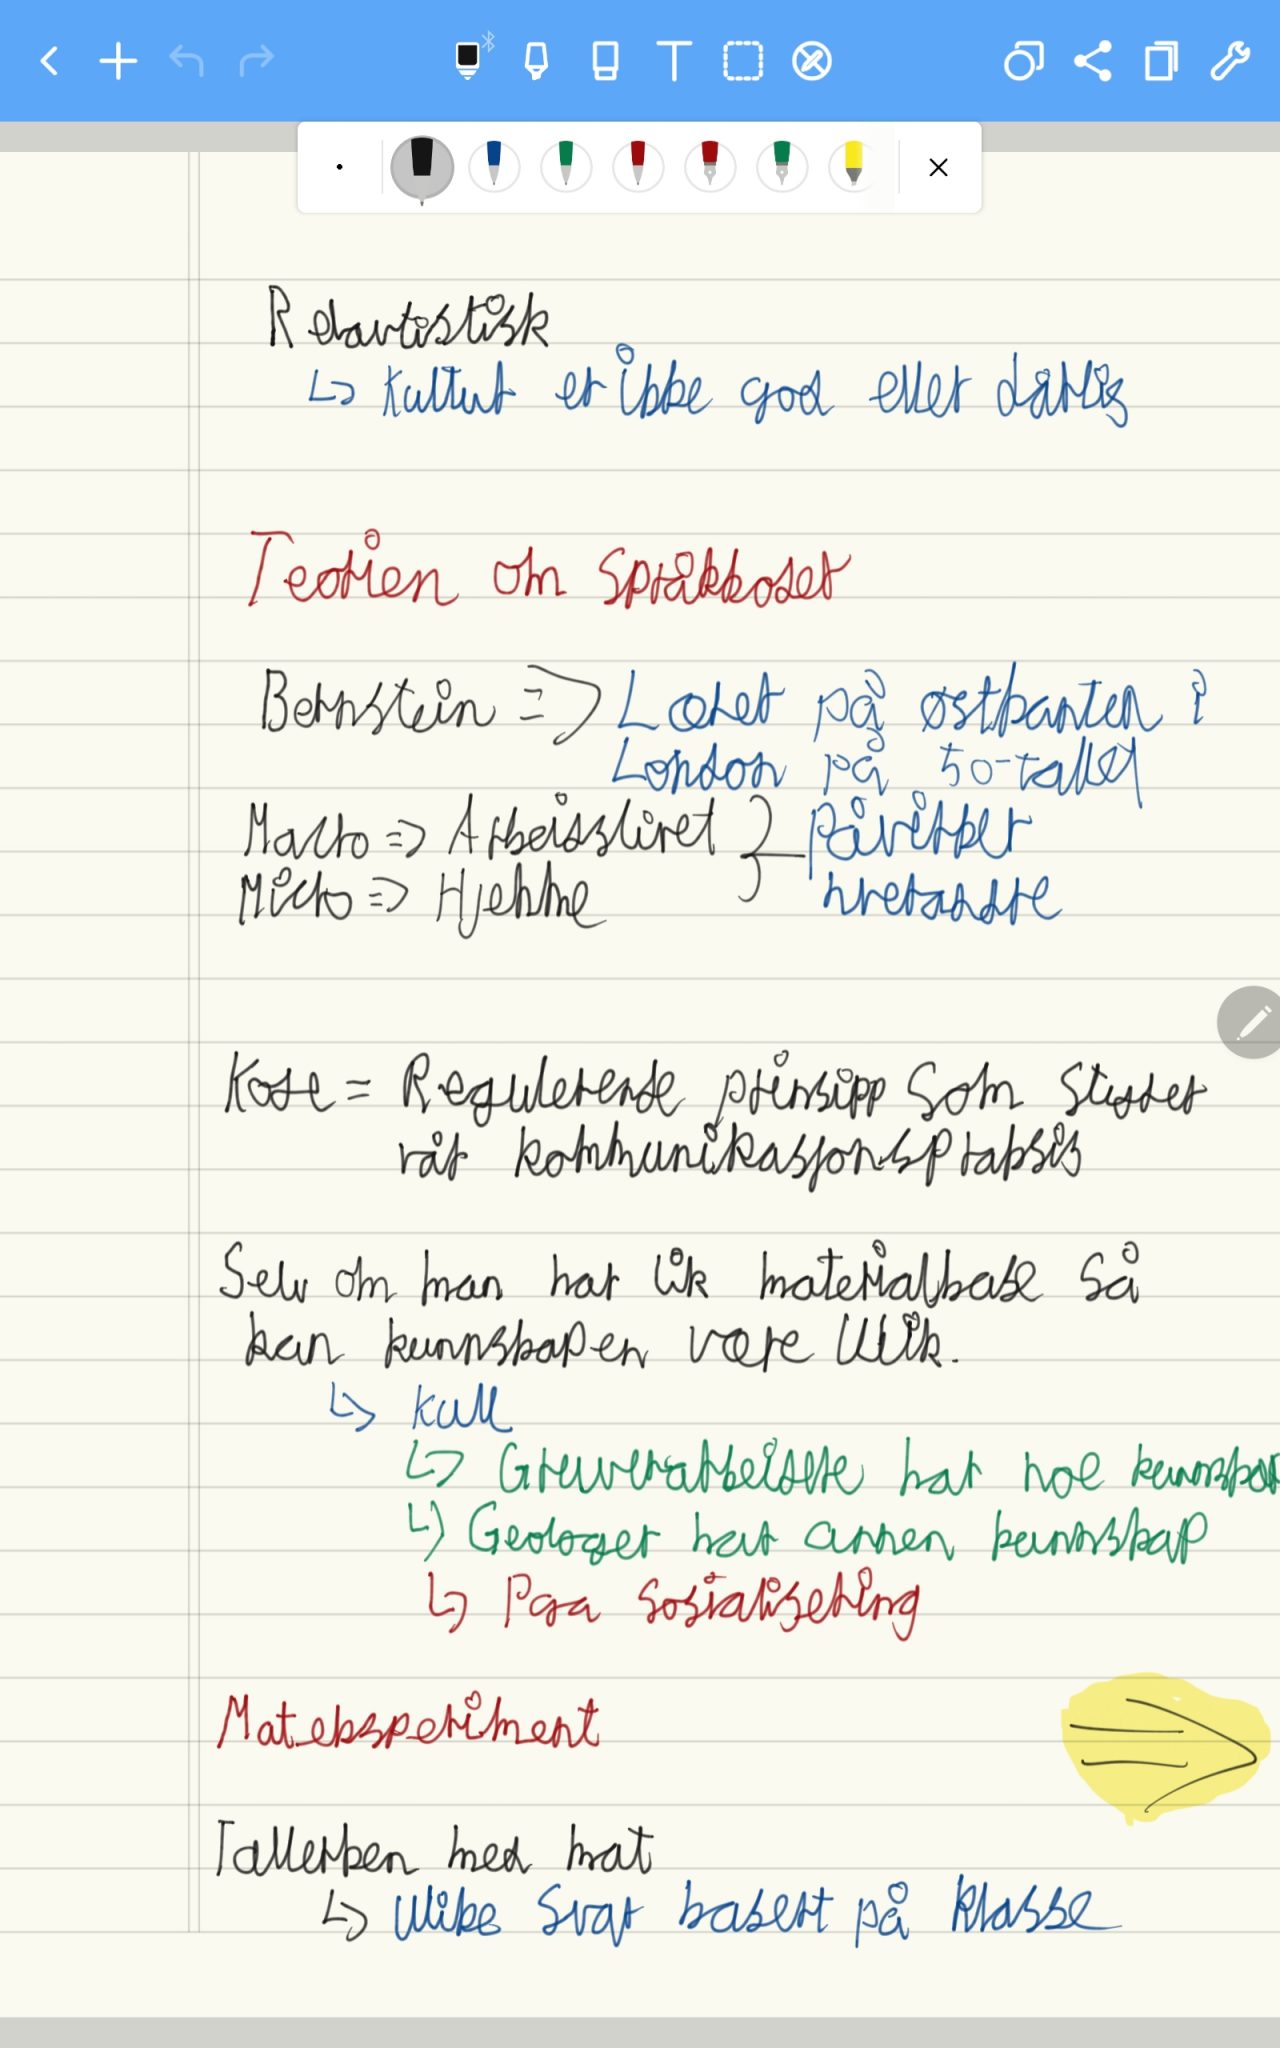 Relavtistisk
↳ Kultur er ikke god eller dårlig
Teorien om Språkkoder
Bernstein => Lærer på østkanten i
London på 50-tallet
Makro => Arbeidslivet } Påvirker
Mikro => Hjemme hverandre
Kode = Regulerende prinsipp som styrer
vår kommunikasjonspraksis
Selv om man har lik materialbase så
kan kunnskapen være ulik.
↳ Kull
↳ Gruverarbeidere har noe kunnskap
↳ Geologer har annen kunnskap
↳ Pga sosialisering
Mateksperiment
=>
Tallerken med mat
↳ Ulike svar basert på klasse